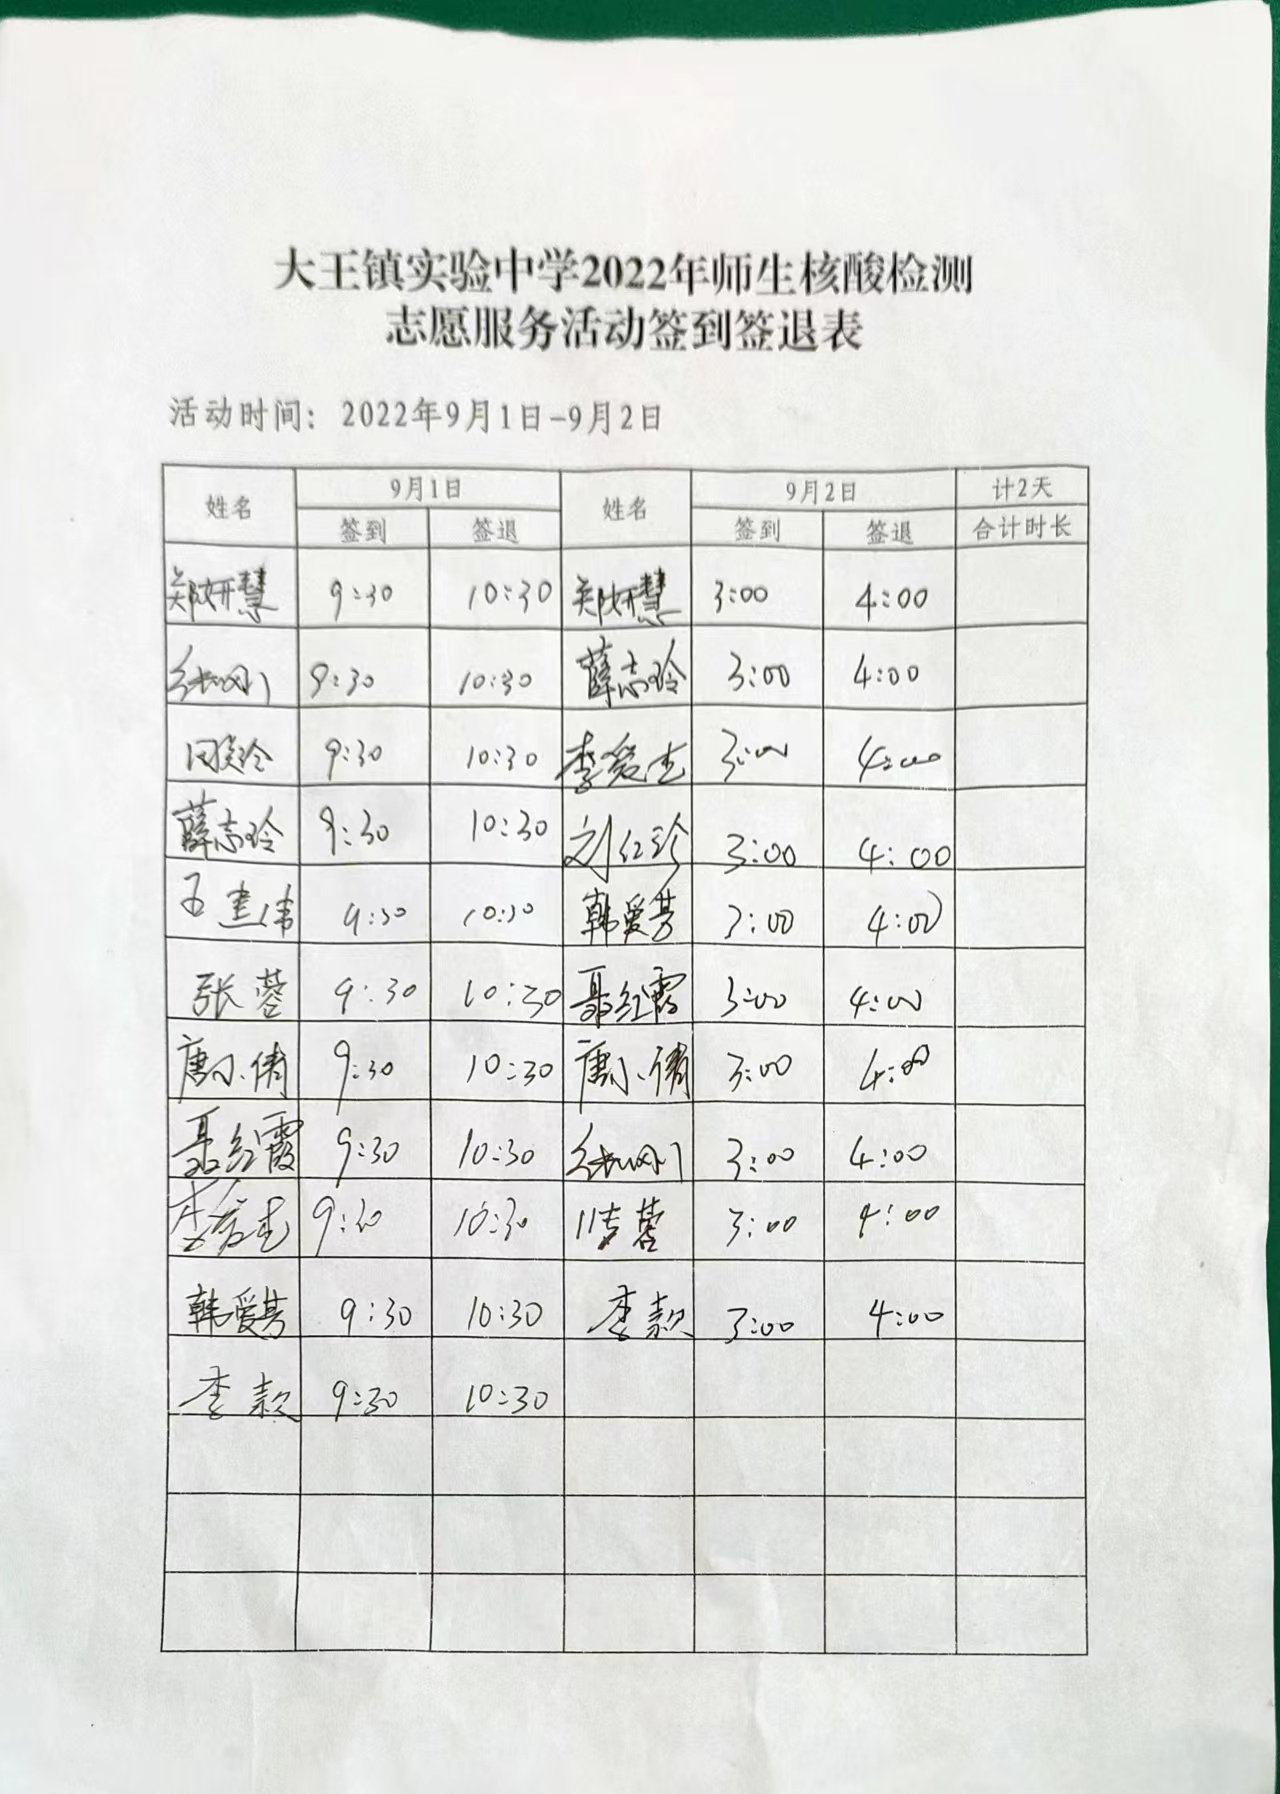 大王镇实验中学2022年师生核酸检测
志愿服务活动签到签退表
活动时间：2022年9月1日-9月2日
姓名 9月1日 姓名 9月2日 计2天
签到 签退 签到 签退 合计时长
郑妍慧 9:30 10:30 郑妍慧 3:00 4:00
9:30 10:30 薛志玲 3:00 4:00
9:30 10:30 李爱杰 3:00 4:00
薛志玲 9:30 10:30 刘红珍 3:00 4:00
王建伟 9:30 10:30 韩爱芳 3:00 4:00
张蓉 9:30 10:30 聂红霞 3:00 4:00
唐小倩 9:30 10:30 唐小倩 3:00 4:00
聂红霞 9:30 10:30 3:00 4:00
李爱杰 9:30 10:30 3:00 4:00
韩爱芳 9:30 10:30 李款 3:00 4:00
李款 9:30 10:30